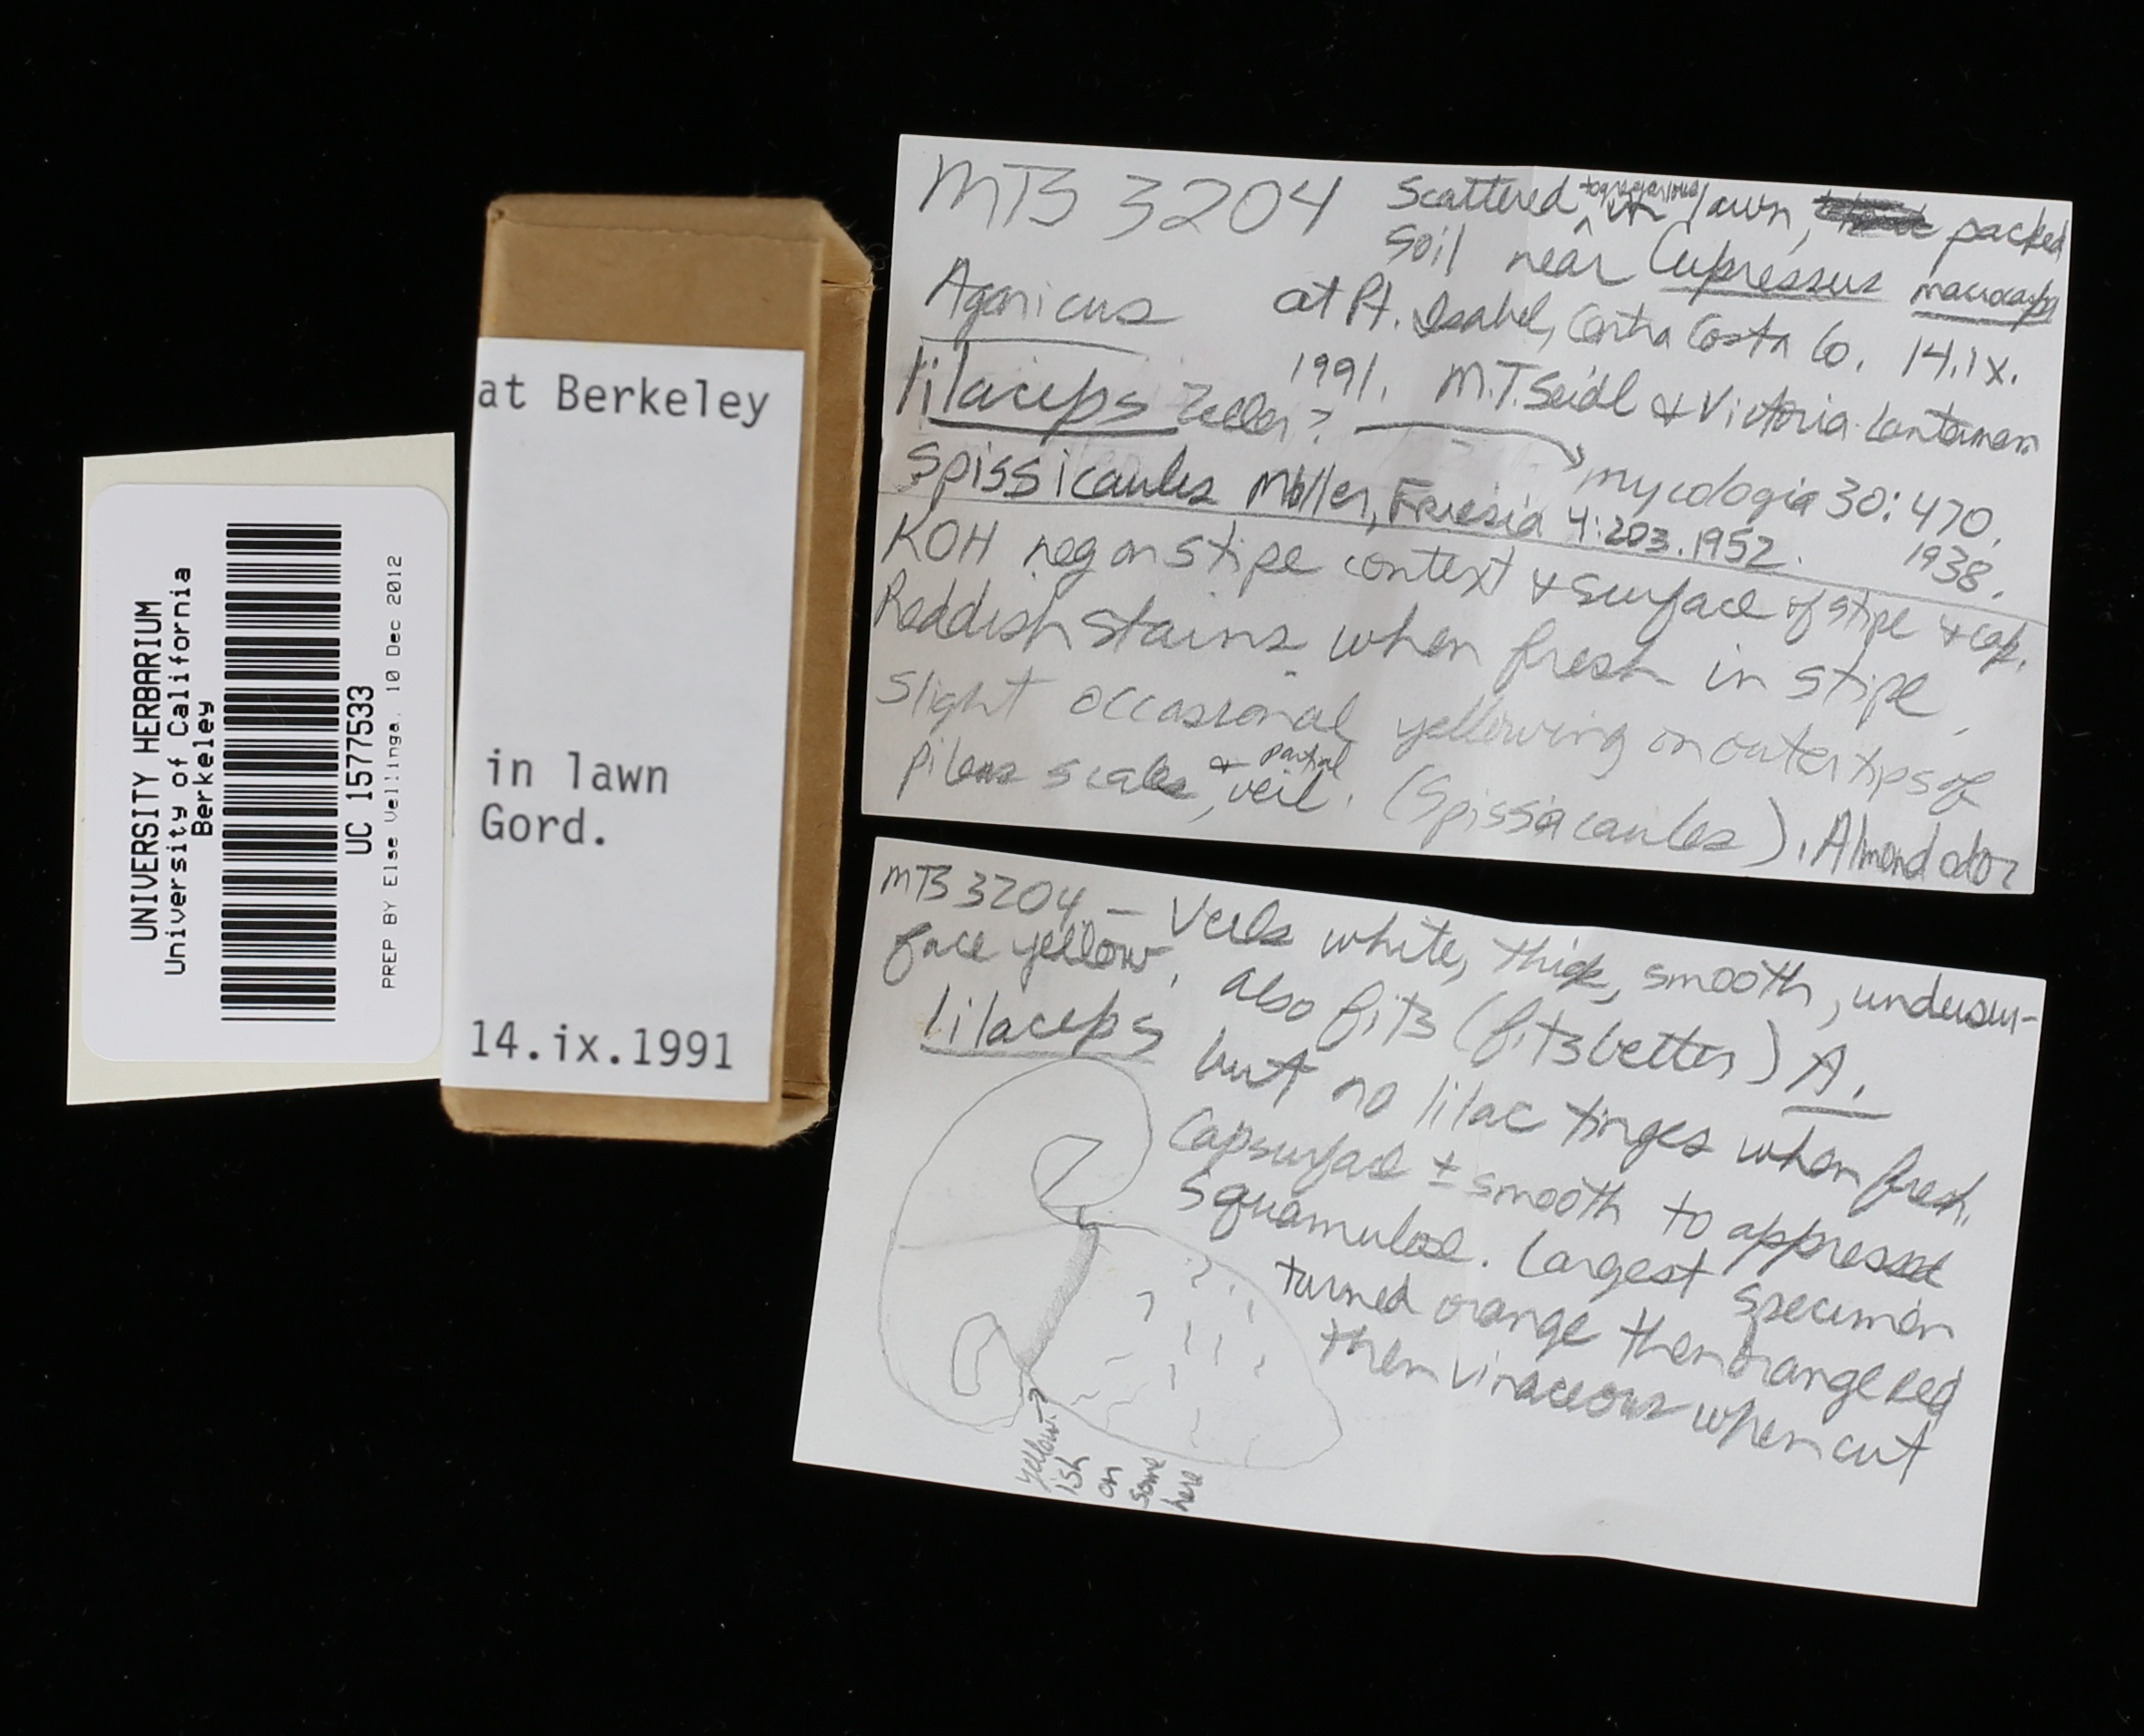 UNIVERSITY HERBARIUM
University of California
Berkeley
UC 1577533
PREP BY Else Vellinga, 10 Dec 2012
at Berkeley
in lawn
Gord.
14.ix.1991
MTS 3204
Scattered in lawn, packed
soil near Cupressus macrocarpa
Agaricus
at Pt. Isabel, Contra Costa Co. 14.ix.
lilaceps Zeller?
1991. M.T. Seidl & Victoria
Mycologia 30: 470.
1938.
Spissicaules Möller, Friesia 4:203.1952.
KOH neg on stipe context & surface of stipe & cap.
Reddish stains when fresh in stipe,
slight occasional yellowing on outer tips of
pileus scales, & partial veil. (Spissicaules). Almond odor
MTS 3204 – Veils white, thick, smooth, undersur-
face yellow, also fits (fits better) A.
lilaceps but no lilac tinges when fresh.
Cap surface ± smooth to appressed
squamulose. Largest specimen
turned orange then orange red
then vinaceous when cut
yellow-
ish
on
some
here